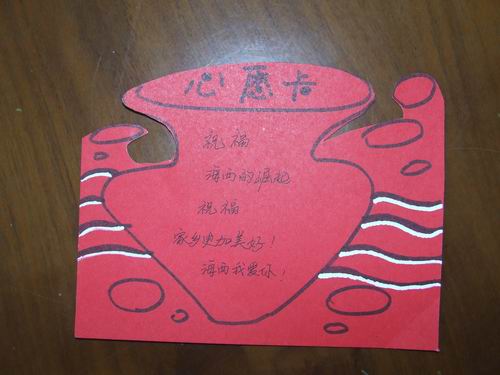 心愿卡
祝福
海西的崛起
祝福
家乡更加美好！
海西我爱你！